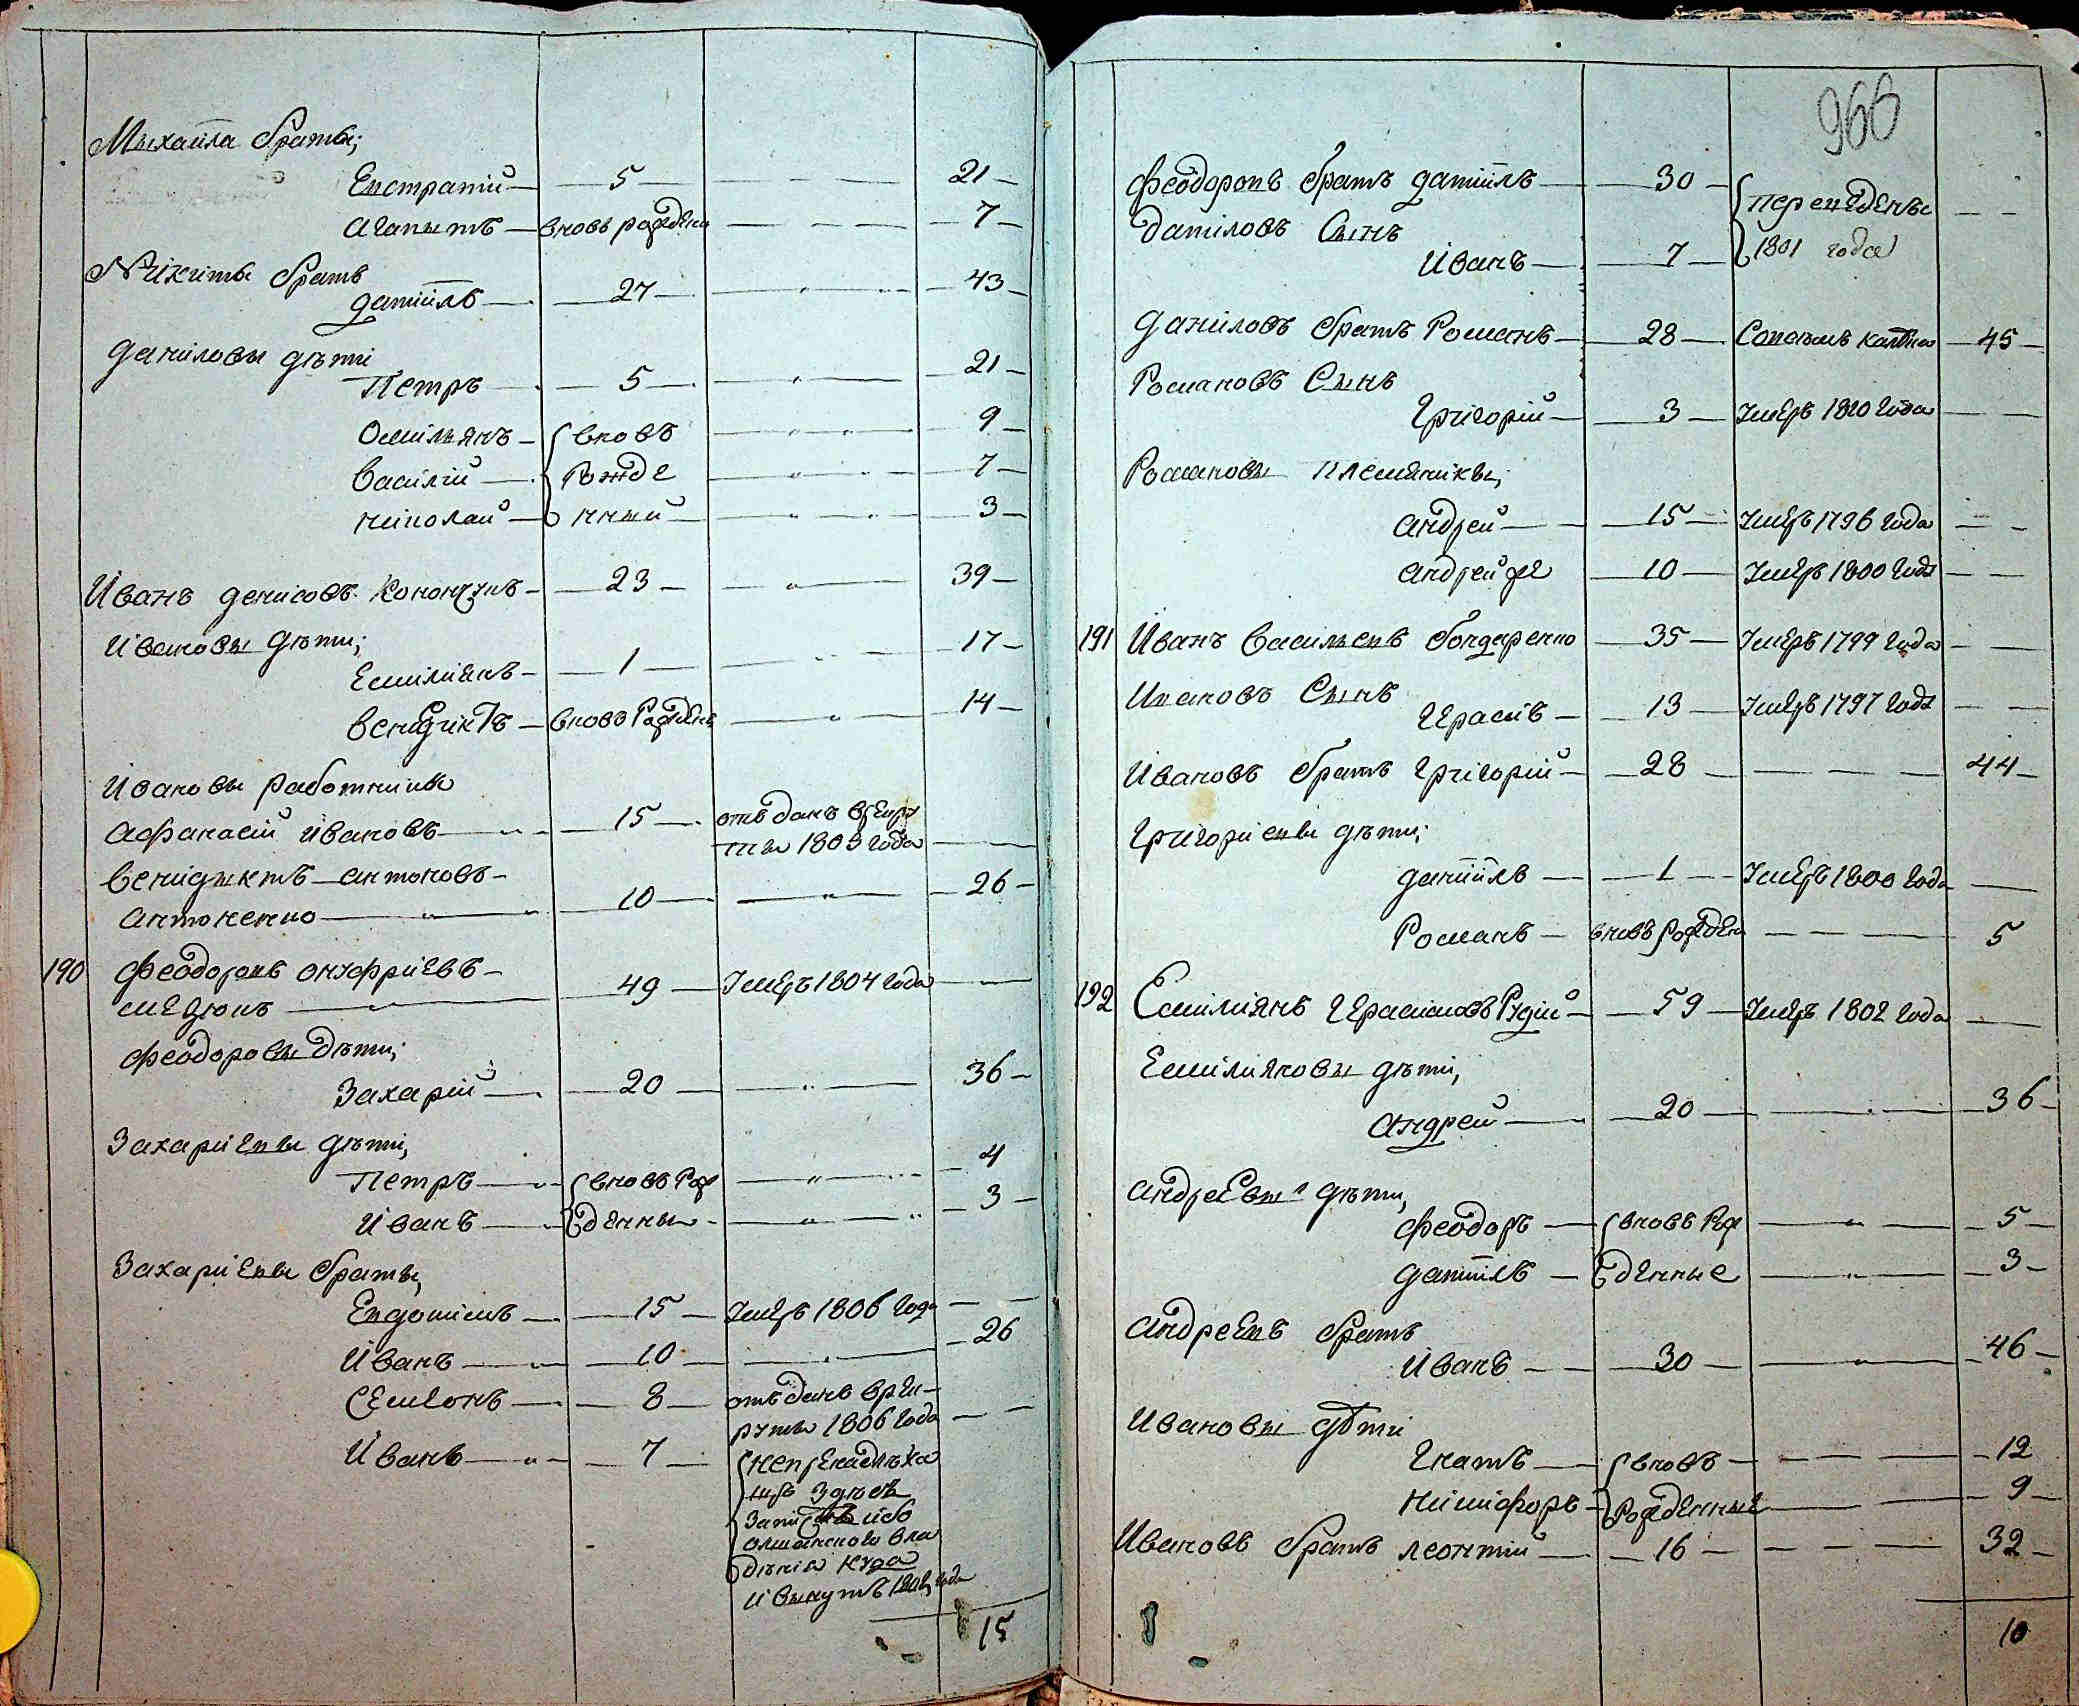 Михаила браты;
Евстратий — 5 — 21
Агапытъ — вновь рожденъ — 7
Никиты братъ
Даниилъ — 27 — 43
Даниловы дѣти
Петръ — 5 — 21
Омильянъ — вновь — 9
Василий — рожде — 7
Николай — нный — 3
Иванъ Денисовъ — 23 — 39
Ивановы дѣти;
Емилиянъ — 1 — 17
Венедиктъ — вновь рожденъ — 14
Ивановы работники
Афанасий Ивановъ — 15 — отъданъ врекру
ты 1803 года
Венидыктъ Антоновъ
Антоненко — 10 — 26
190 Феодоровъ Онуфриевъ
— 49 — умеръ 1804 года
Феодоровы дѣти;
Захарий — 20 — 36
Захариевы дѣти;
Петръ — вновь рож — 4
Иванъ — денны — 3
Захариевы браты;
Евдокимъ — 15 — умеръ 1806 года
Иванъ — 10 — 26
Семионъ — 8 — отъданъ врек
руты 1806 года
Иванъ — 7 — непренадлѣжа
щъ здѣсь
изъ
олшанского вла
дѣния
15
966
Феодоровъ братъ Даниилъ — 30 — переведены
Даниловъ сынъ
Иванъ — 7 — 1801 года
Даниловъ братъ Романъ — 28 — 45
Романовъ сынъ
Григорий — 3 — умеръ 1810 года
Романовы племяникы;
Андрей — 15 — умеръ 1796 года
Андрей же — 10 — умеръ 1800 года
191 Иванъ Васильевъ Бондаренко — 35 — умеръ 1799 года
Ивановъ сынъ
Герасимъ — 13 — умеръ 1797 года
Ивановъ братъ Григорий — 28 — 44
Григориевы дѣти;
Даниилъ — 1 — умеръ 1800 года
Романъ — вновь рожденъ — 5
192 Емилиянъ Герасимовъ Рудий — 59 — умеръ 1802 года
Емилияновы дѣти;
Андрей — 20 — 36
Андреевы дѣти;
Феодоръ — вновь рож — 5
Даниилъ — денные — 3
Андреевъ братъ
Иванъ — 30 — 46
Ивановы дѣти
Гнатъ — вновь — 12
Никифоръ — рожденные — 9
Ивановъ братъ Леонтий — 16 — 32
10